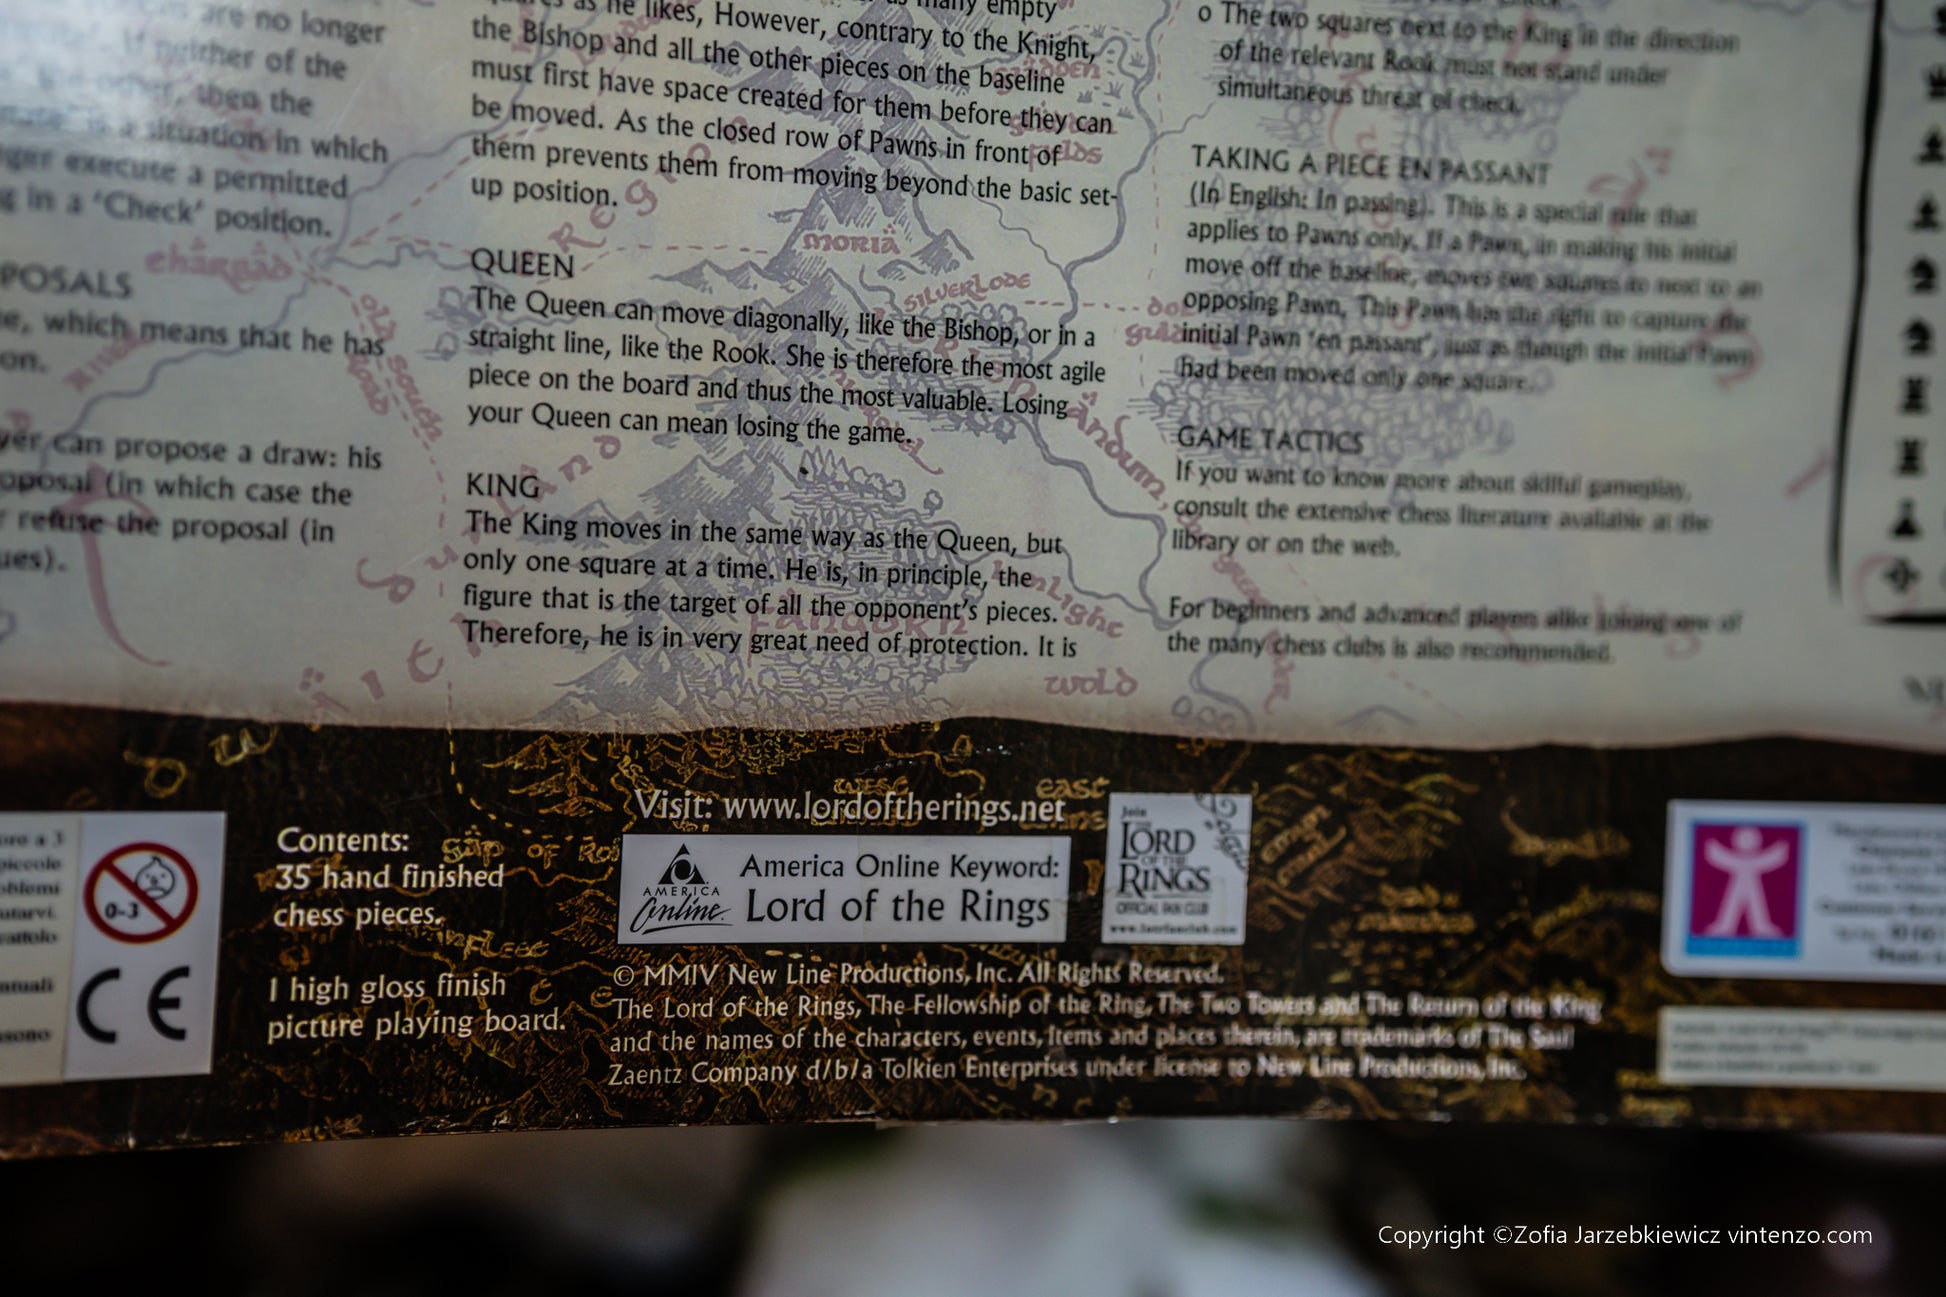 are no longer
If neither of the
then the
is a situation in which
execute a permitted
in a 'Check' position.
POSALS
which means that he has
on.
can propose a draw: his
(in which case the
refuse the proposal (in
ues).
as he likes, However, contrary to the Knight,
the Bishop and all the other pieces on the baseline
must first have space created for them before they can
be moved. As the closed row of Pawns in front of
them prevents them from moving beyond the basic set-
up position.
QUEEN
The Queen can move diagonally, like the Bishop, or in a
straight line, like the Rook. She is therefore the most agile
piece on the board and thus the most valuable. Losing
your Queen can mean losing the game.
KING
The King moves in the same way as the Queen, but
only one square at a time. He is, in principle, the
figure that is the target of all the opponent's pieces.
Therefore, he is in very great need of protection. It is
o The two squares next to the King in the direction
of the relevant Rook must not stand under
simultaneous threat of check.
TAKING A PIECE EN PASSANT
(In English: In passing). This is a special rule that
applies to Pawns only. If a Pawn, in making his initial
move off the baseline, moves two squares to next to an
opposing Pawn, This Pawn has the right to capture the
initial Pawn 'en passant', just as though the initial Pawn
had been moved only one square.
GAME TACTICS
If you want to know more about skillful gameplay,
consult the extensive chess literature available at the
library or on the web.
For beginners and advanced players alike joining one of
the many chess clubs is also recommended.
MORIA
SILVERLODE
FANGORN
wold
west
east
GAP OF RO
0-3
CE
Contents:
35 hand finished
chess pieces.
1 high gloss finish
picture playing board.
Visit: www.lordoftherings.net
AMERICA
Online
America Online Keyword:
Lord of the Rings
Join
THE
LORD
OF THE
RINGS
OFFICIAL FAN CLUB
www.lotrfanclub.com
© MMIV New Line Productions, Inc. All Rights Reserved.
The Lord of the Rings, The Fellowship of the Ring, The Two Towers and The Return of the King
and the names of the characters, events, items and places therein, are trademarks of The Saul
Zaentz Company d/b/a Tolkien Enterprises under license to New Line Productions, Inc.
Copyright ©Zofia Jarzebkiewicz vintenzo.com